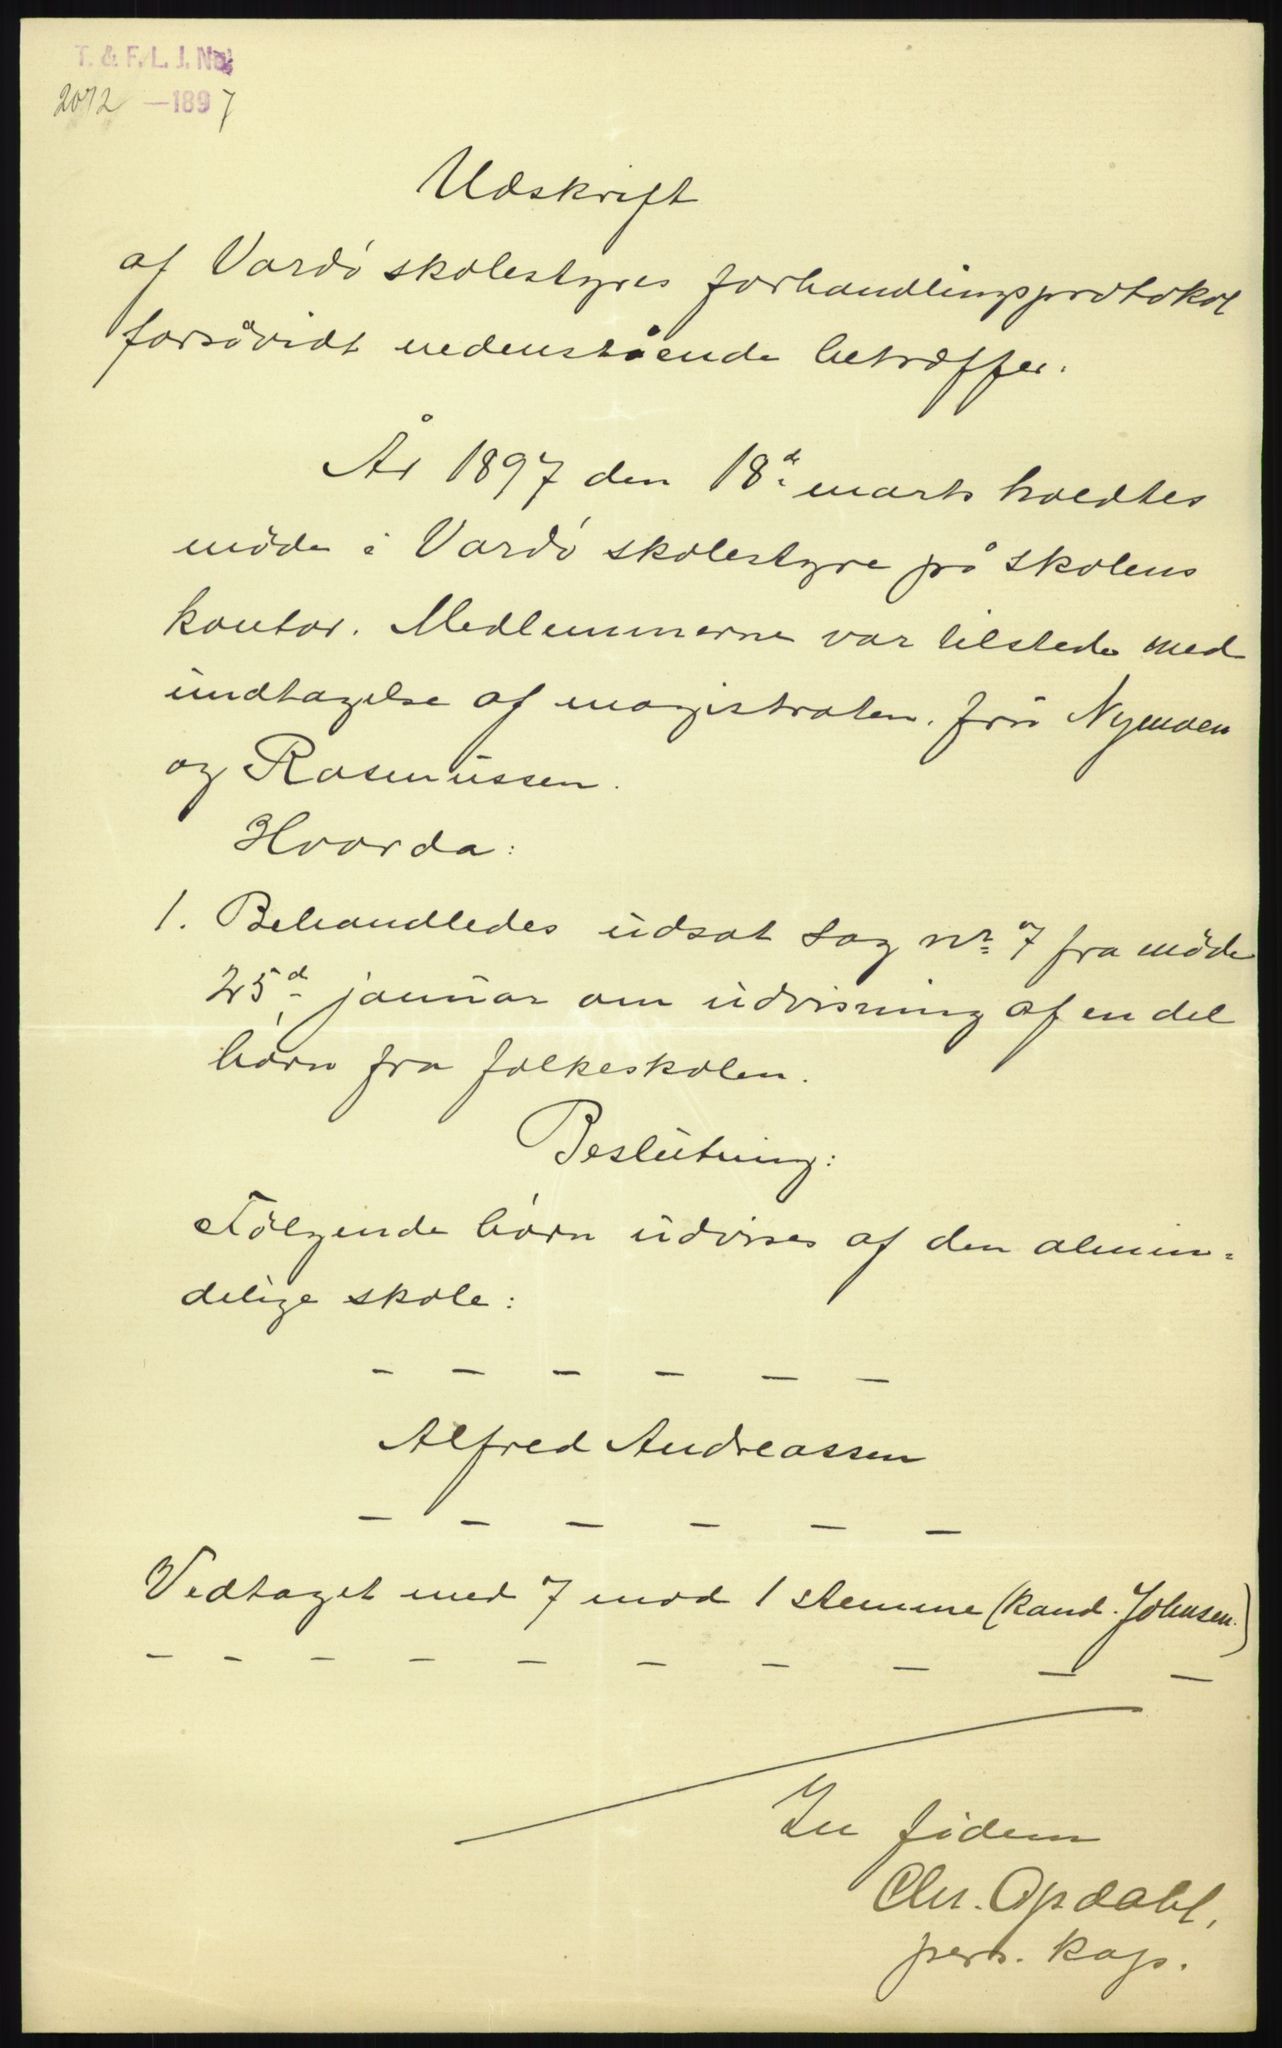 T. & F. L. J. No.
2072 —1897
Udskrift
af Vardö skolestyres forhandlingsprotokol
forsåvidt nedenstående betræffer.
År 1897 den 18d. marts holdtes
möde i Vardö skolestyre på skolens
kontor. Medlemmerne var tilstede med
undtagelse af magistraten, frü Nymoen
og Rasmussen.
Hvorda:
1. Behandledes udsat sag nr. 7 fra möde
25d. januar om udvisning af en del
börn fra folkeskolen.
Beslutning:
Følgende börn udvises af den almin=
delige skole:
— — — — — —
Alfred Andreassen
— — — — — —
Vedtaget med 7 mod 1 stemme (kand. Johnsen.)
— — — — — — — — — —
In fidem
Chr. Opdahl,
pers. kap.